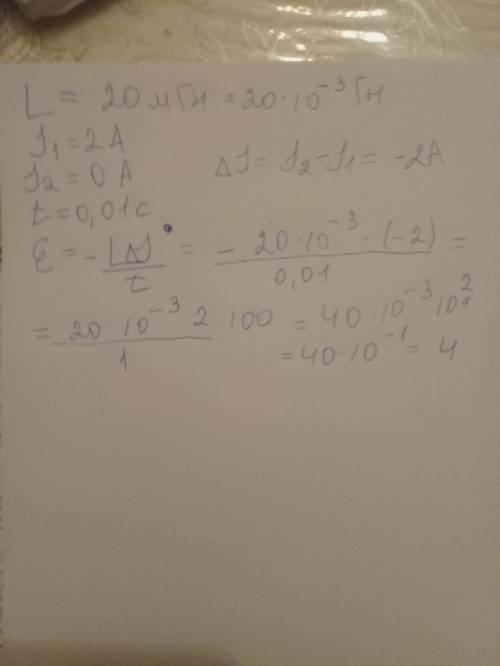 L = 20 мГн = 20·10⁻³ Гн
J₁ = 2A
J₂ = 0 A ΔJ = J₂ - J₁ = -2A
t = 0,01c
ℰ = - LΔJ/t = - 20·10⁻³·(-2)/0,01 =
= 20·10⁻³·2·100/1 = 40·10⁻³·10²
= 40·10⁻¹ = 4